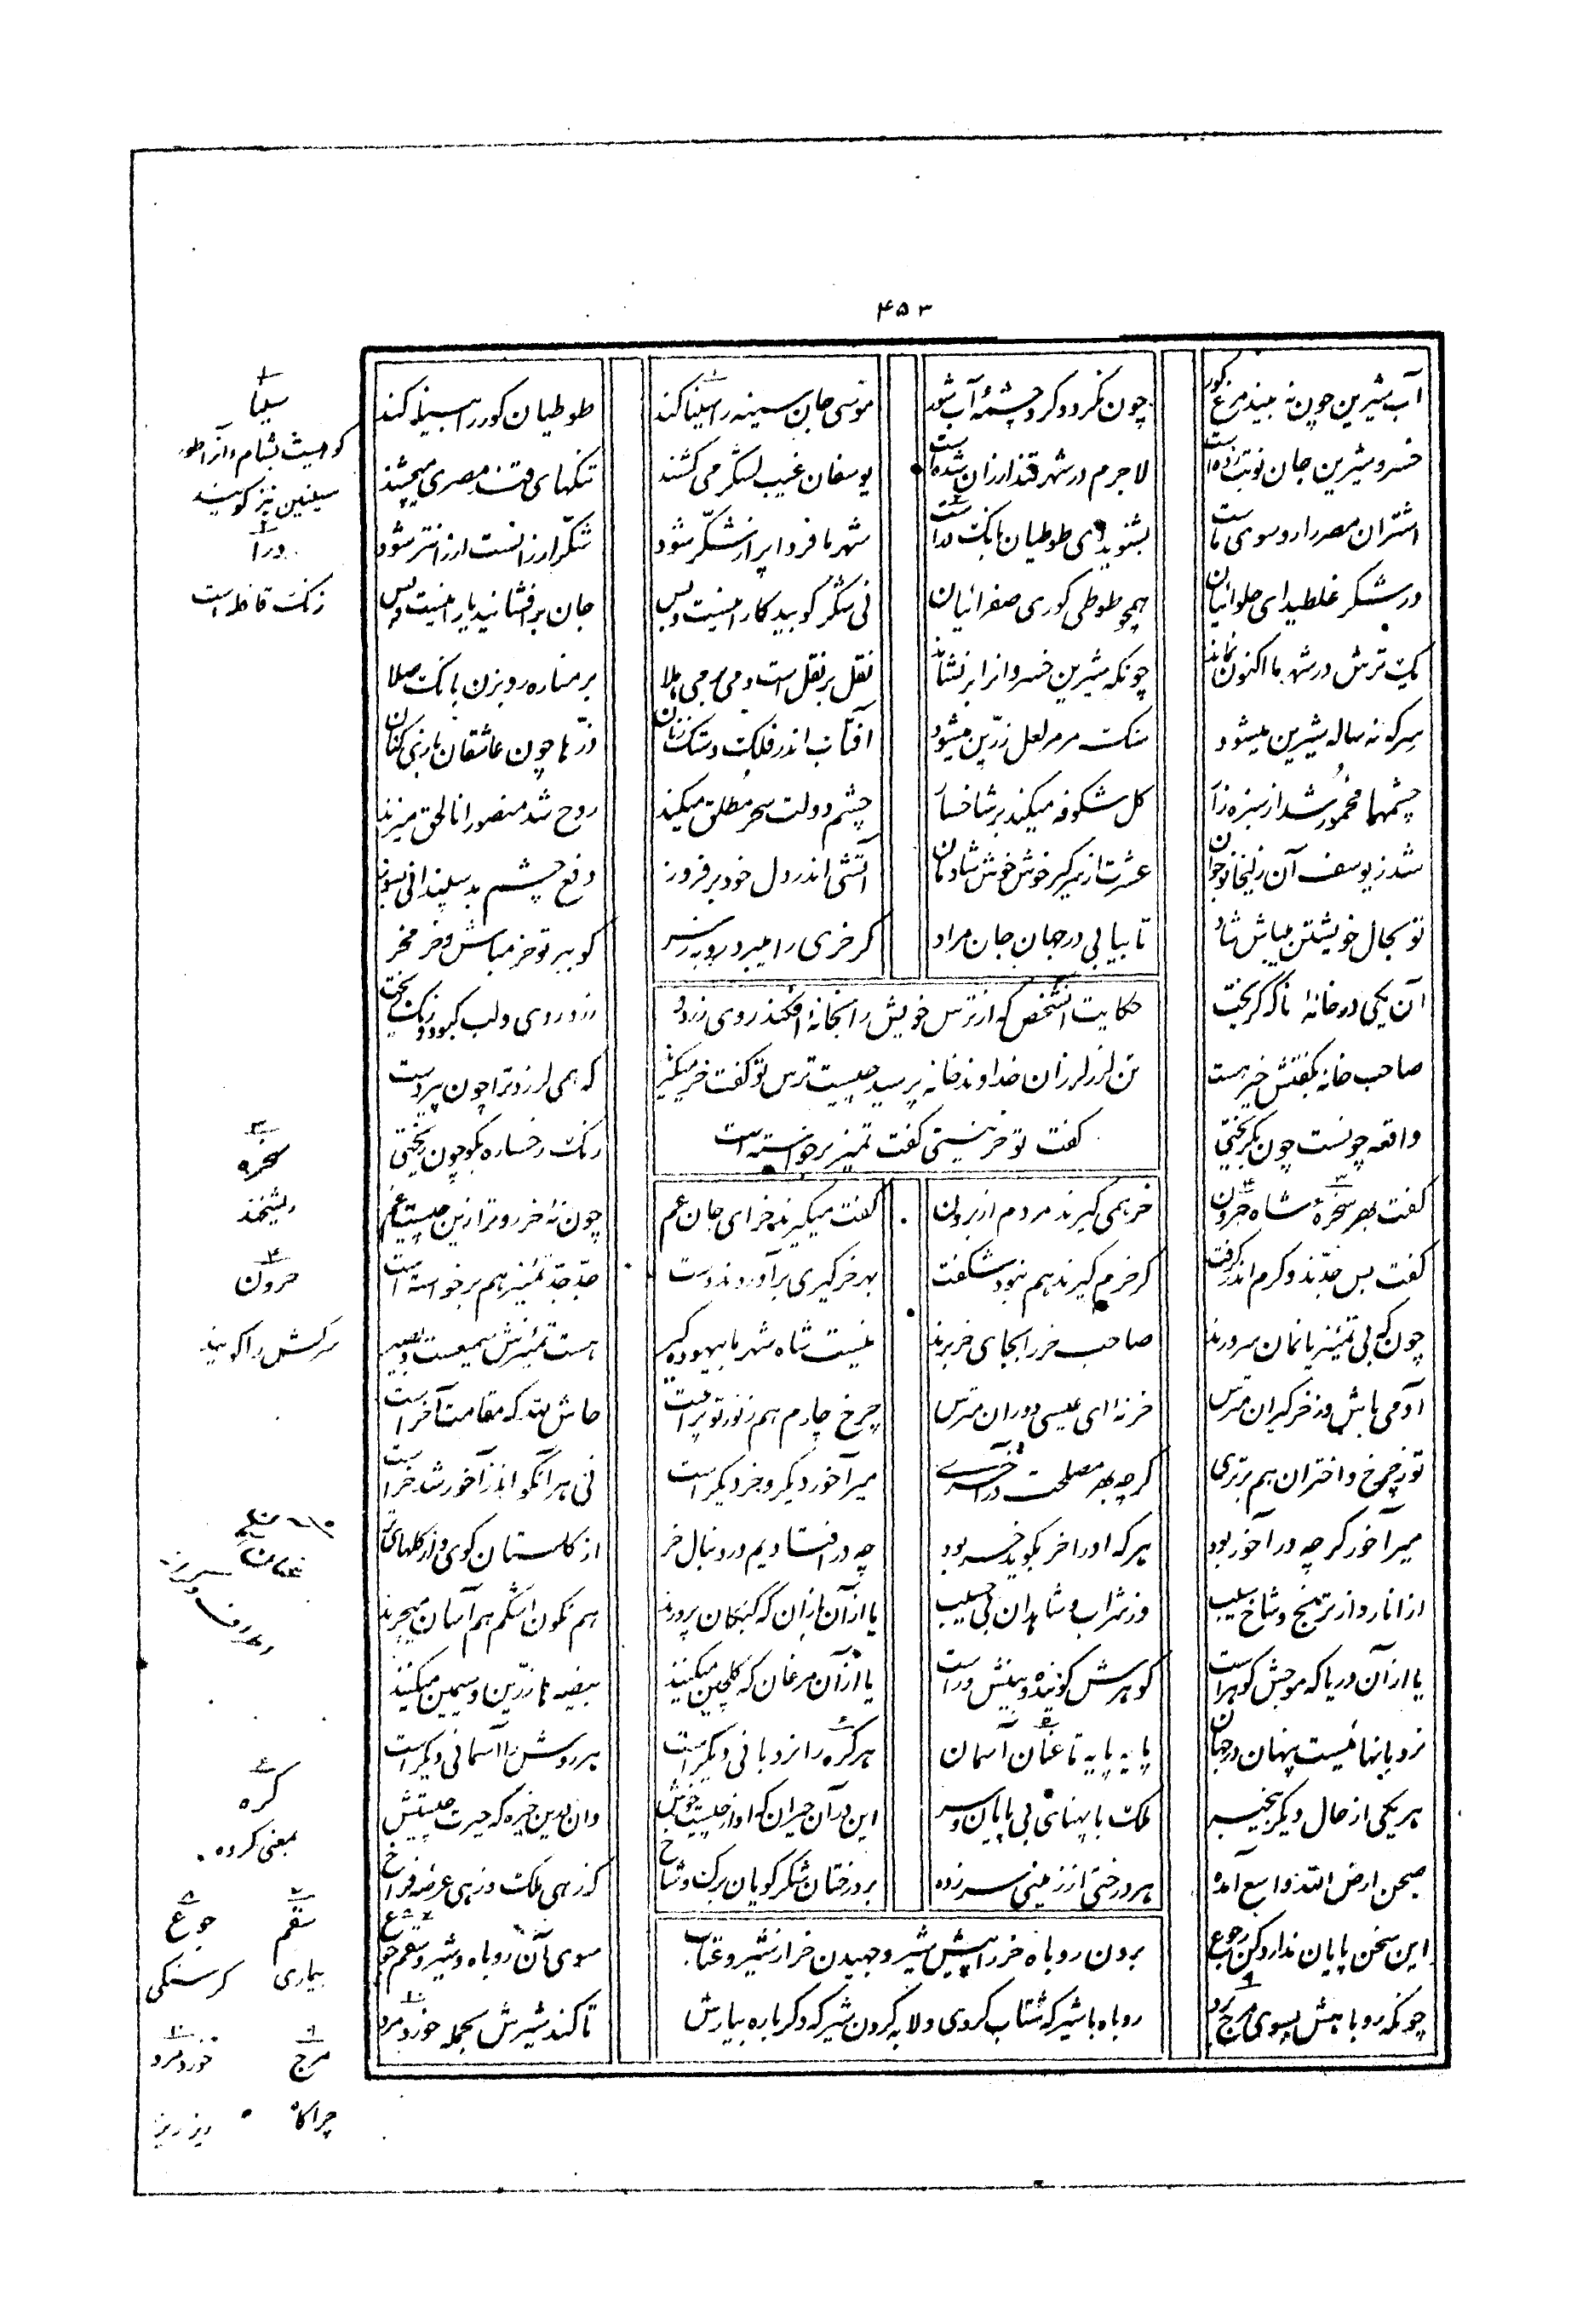 ۴۵۳
آب شیرین چون نه بیند مرغ کور چون نگردد گرد چشمهٔ آب شور موسی جان سینه را سینا کند طوطیان کور را بینا کند
خسرو شیرین جان نوبت زده است لاجرم در شهر قند ارزان شده است یوسفان غیب لشکر می کشند تنکهای قند مصری میچشند
اشتران مصر را رو سوی ماست بشنوید ای طوطیان بانک دراست شهر ما فردا پر از شکّر شود شکّر ارزانست ارزانتر شود
در شکر غلطید ای حلوائیان همچو طوطی کوری صفرائیان نی شکر کوبید کار اینست و بس جان بر افشانید یار اینست و بس
یک ترش در شهر ما اکنون نماند چونکه شیرین خسروانرا بر نشاند نقل بر نقل است و می بر می هلا بر مناره رو بزن بانک صلا
سرکه نه ساله شیرین میشود سنک مرمر لعل زرّین میشود آفتاب اندر فلک دستک زنان ذرّها چون عاشقان بازی کنان
چشمها مخمور شد از سبزه زار کل شکوفه میکند بر شاخسار چشم دولت سحر مطلق میکند روح شد منصور انا الحق میزند
شد ز یوسف آن زلیخا نوجوان عشرت از سر گیر خوش خوش شادمان آتشی اندر دل خود بر فروز دفع چشم بد سپندانی بسوز
تو بحال خویشتن میباش شاد تا بیابی در جهان جان مراد گر خری را میبرد روبه ز سر گو ببر تو خر مباش و خر مخر
حکایت آنشخص که از ترس خویش را بخانهٔ افکند روی زرد و
تن لرز لرزان خداوند خانه پرسید چیست ترس تو گفت خر میگیرند
گفت تو خر نیستی گفت تمیز برخواسته است
آن یکی در خانهٔ ناگه گریخت زرد روی و لب کبود و رنگ ریخت
صاحب خانه بگفتش خیر هست که همی لرزد ترا چون پیر دست
واقعه چونست چون بگریختی رنگ رخساره بگو چون ریختی
گفت بهر سخرهٔ شاه حرون خر همی گیرند مردم از برون گفت میگیرند خر ای جان عم چون نهٔ خر رو ترا زین چیست غم
گفت بس جدّند و گرم اندر گرفت گر خرم گیرند هم نبود شگفت بهر خر گیری برآوردند دست جدّ جدّ تمییز هم برخواسته است
چون که بی تمییزیانمان سرورند صاحب خر را بجای خر برند نیست شاه شهر ما بیهوده گیر هست تمییزش سمیعست و بصیر
آدمی باش و ز خر گیران مترس خر نهٔ ای عیسی دوران مترس چرخ چارم هم ز نور تو پر است حاش لله که مقامت آخر است
تو ز چرخ و اختران هم برتری گرچه بهر مصلحت در آخری میر آخور دیگر و خر دیگر است نی هر آنکو اندر آخور شد خر است
میر آخور گرچه در آخور بود هر که او را خر بگوید خر بود چه در افتادیم در دنبال خر از گلستان گوی و از گلهای تر
از انار و از ترنج و شاخ سیب وز شراب و شاهدان بی حسیب یا از آن بازان که کبکان پرورند هم نگون اشکم هم آسان میچرند
یا از آن دریا که موجش گوهر است گوهرش گوینده و بینش ور است یا از آن مرغان که گلچین میکنند بیضه ها زرّین و سیمین میکنند
نردبانهائیست پنهان در جهان پایه پایه تا عنان آسمان هر کُره را نردبانی دیگر است هر روش را آسمانی دیگر است
هر یکی از حال دیگر بیخبر ملک با پهنای بی پایان و سر این در آن حیران که او از چیست خوش وان درین خیره که حیرت چیستش
صحن ارض الله واسع آمده هر درختی از زمینی سر زده بر درختان شکر گویان برگ و شاخ کز زهی ملک و زهی عرصه فراخ
بردن روباه خر را پیش شیر و جهیدن خر از شیر و عتاب
روباه با شیر که شتاب کردی و لابه کردن شیر که دگر باره بیارش
این سخن پایان ندارد کن رجوع سوی آن روباه و شیر و سقم جوع
چونکه روباهش بسوی مرج برد تا کند شیرش بحمله خورد مرد
۱ سینا
کوهیست بشام و آنرا طور
سینین نیز گویند
۲ درا
زنگ قافله است
۳ سخره
ریشخند
۴ حرون
سرکش را گویند
۶ کره
بمعنی کروه
۷ سقم
بیماری
۸ جوع
گرسنگی
۹ مرج
چراگاه
۱۰ خورد مرد
ریز ریز